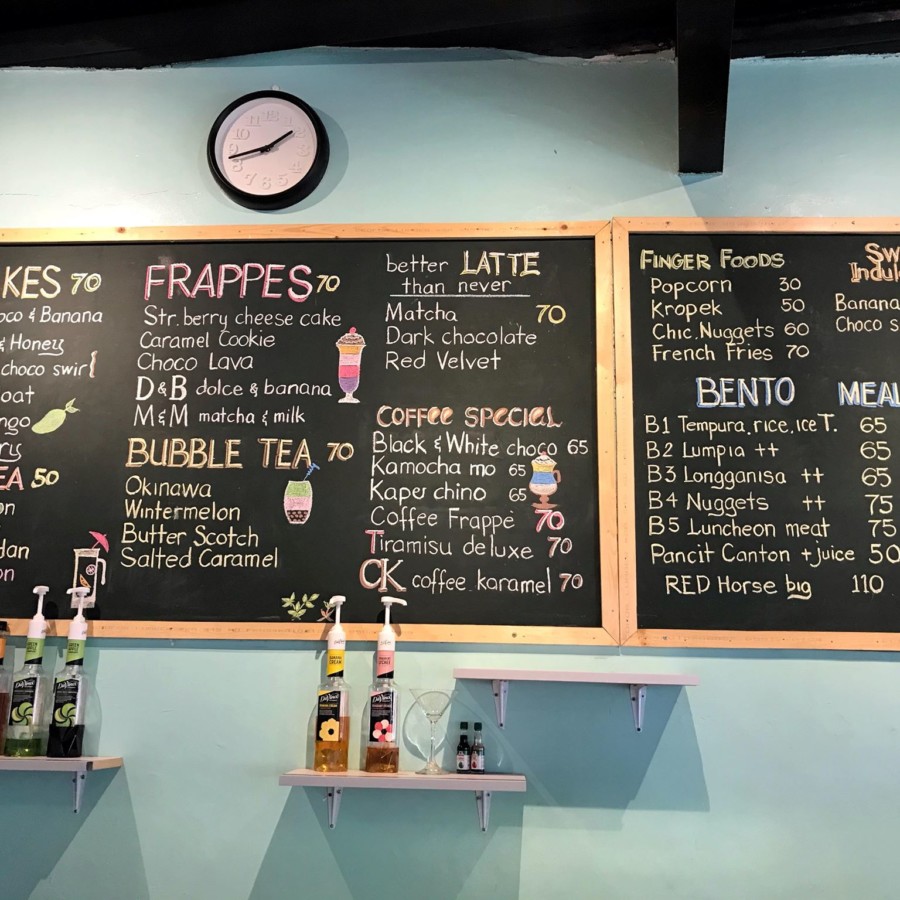 KES 70
oco & Banana
& Honey
choco swirl
oat
ngo
ry
EA 50
on
dan
on
FRAPPES 70
Str.berry cheese cake
Caramel Cookie
Choco Lava
D&B dolce & banana
M&M matcha & milk
BUBBLE TEA 70
Okinawa
Wintermelon
Butter Scotch
Salted Caramel
better LATTE
than never
Matcha 70
Dark chocolate
Red Velvet
COFFEE SPECIAL
Black & White choco 65
Kamocha mo 65
Kaper chino 65
Coffee Frappe 70
Tiramisu deluxe 70
CK coffee karamel 70
FINGER FOODS
Popcorn 30
Kropek 50
Chic.Nuggets 60
French Fries 70
SW
Indul
Banana
Choco s
BENTO MEAL
B1 Tempura.rice.iceT. 65
B2 Lumpia ++ 65
B3 Longganisa ++ 65
B4 Nuggets ++ 75
B5 Luncheon meat 75
Pancit Canton +juice 50
RED Horse big 110
DaVinci
DaVinci
DaVinci
DaVinci